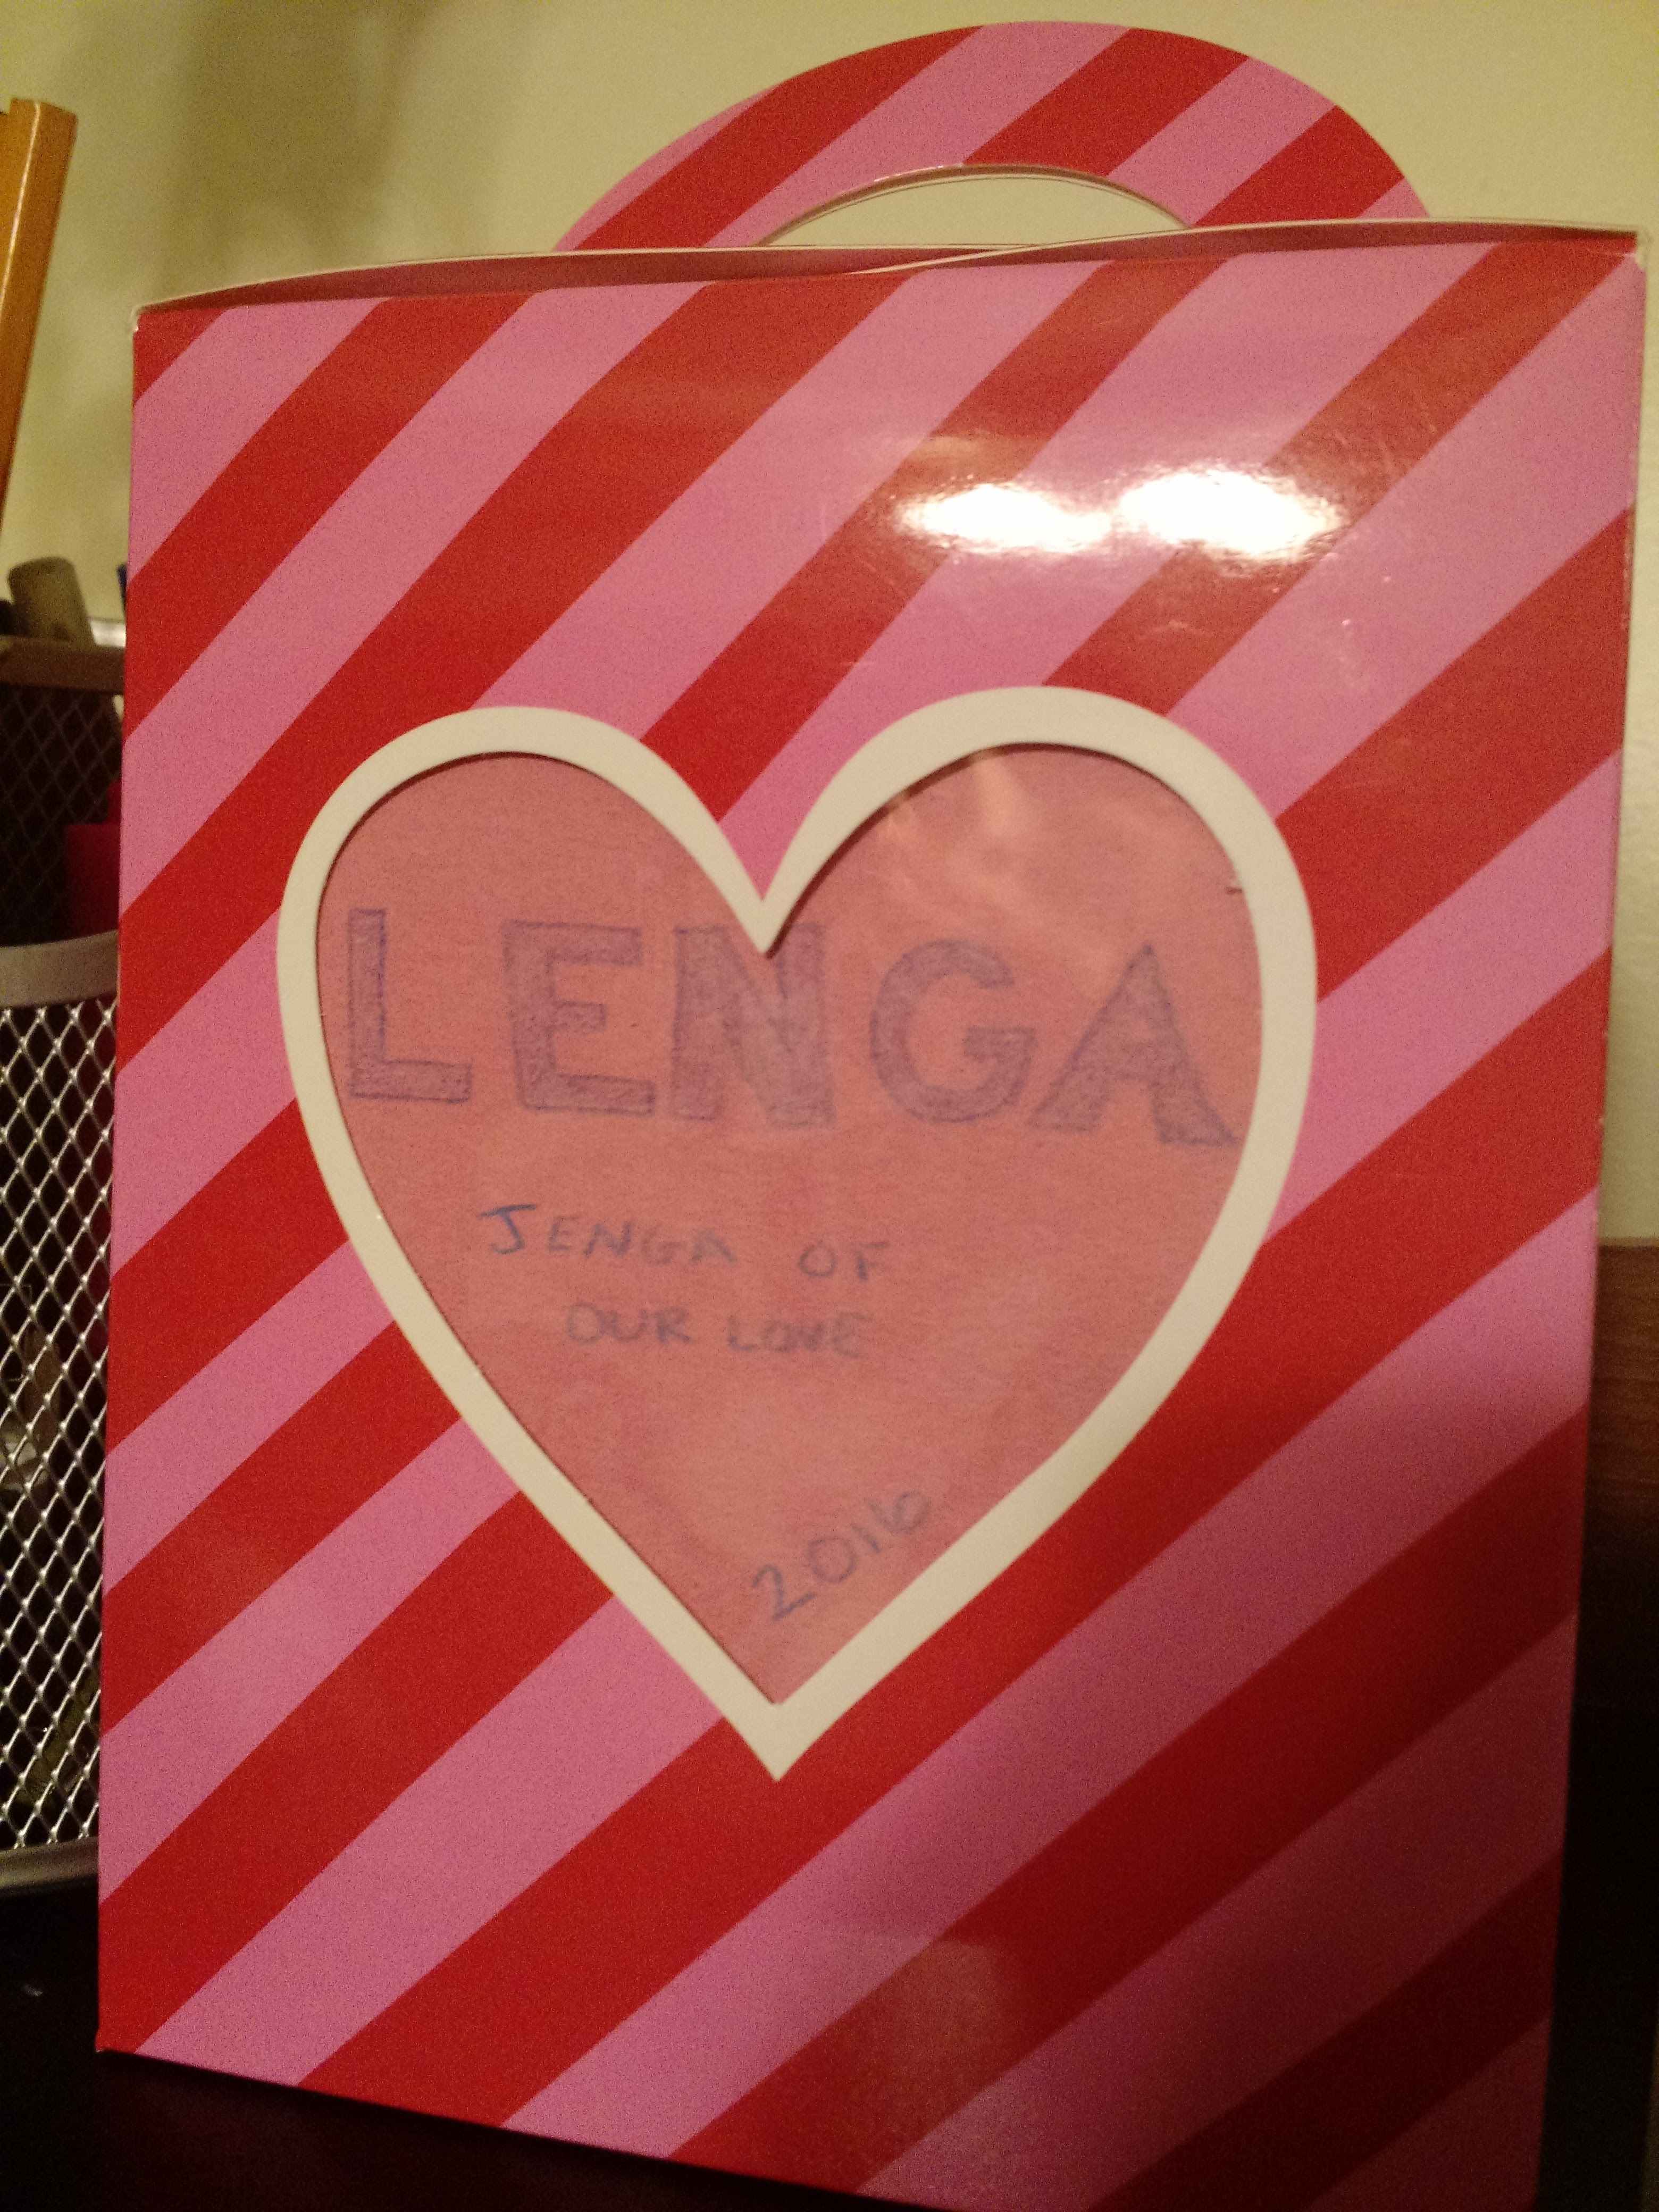 LENGA
JENGA OF
OUR LOVE
2016